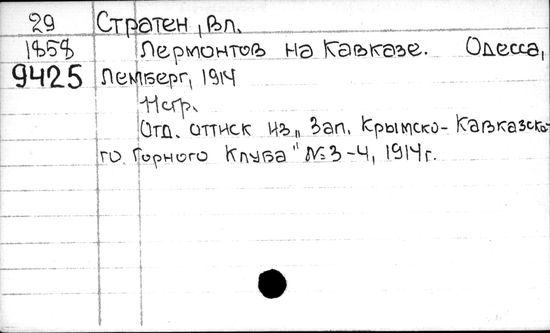 29 Стратен, Вл.
1858 Лермонтов на Кавказе. Одесса,
9425 Лемберг, 1914
11 стр.
Отд. оттиск из „Зап. Крымско-Кавказско-
го Горного Клуба" №3-4, 1914г.